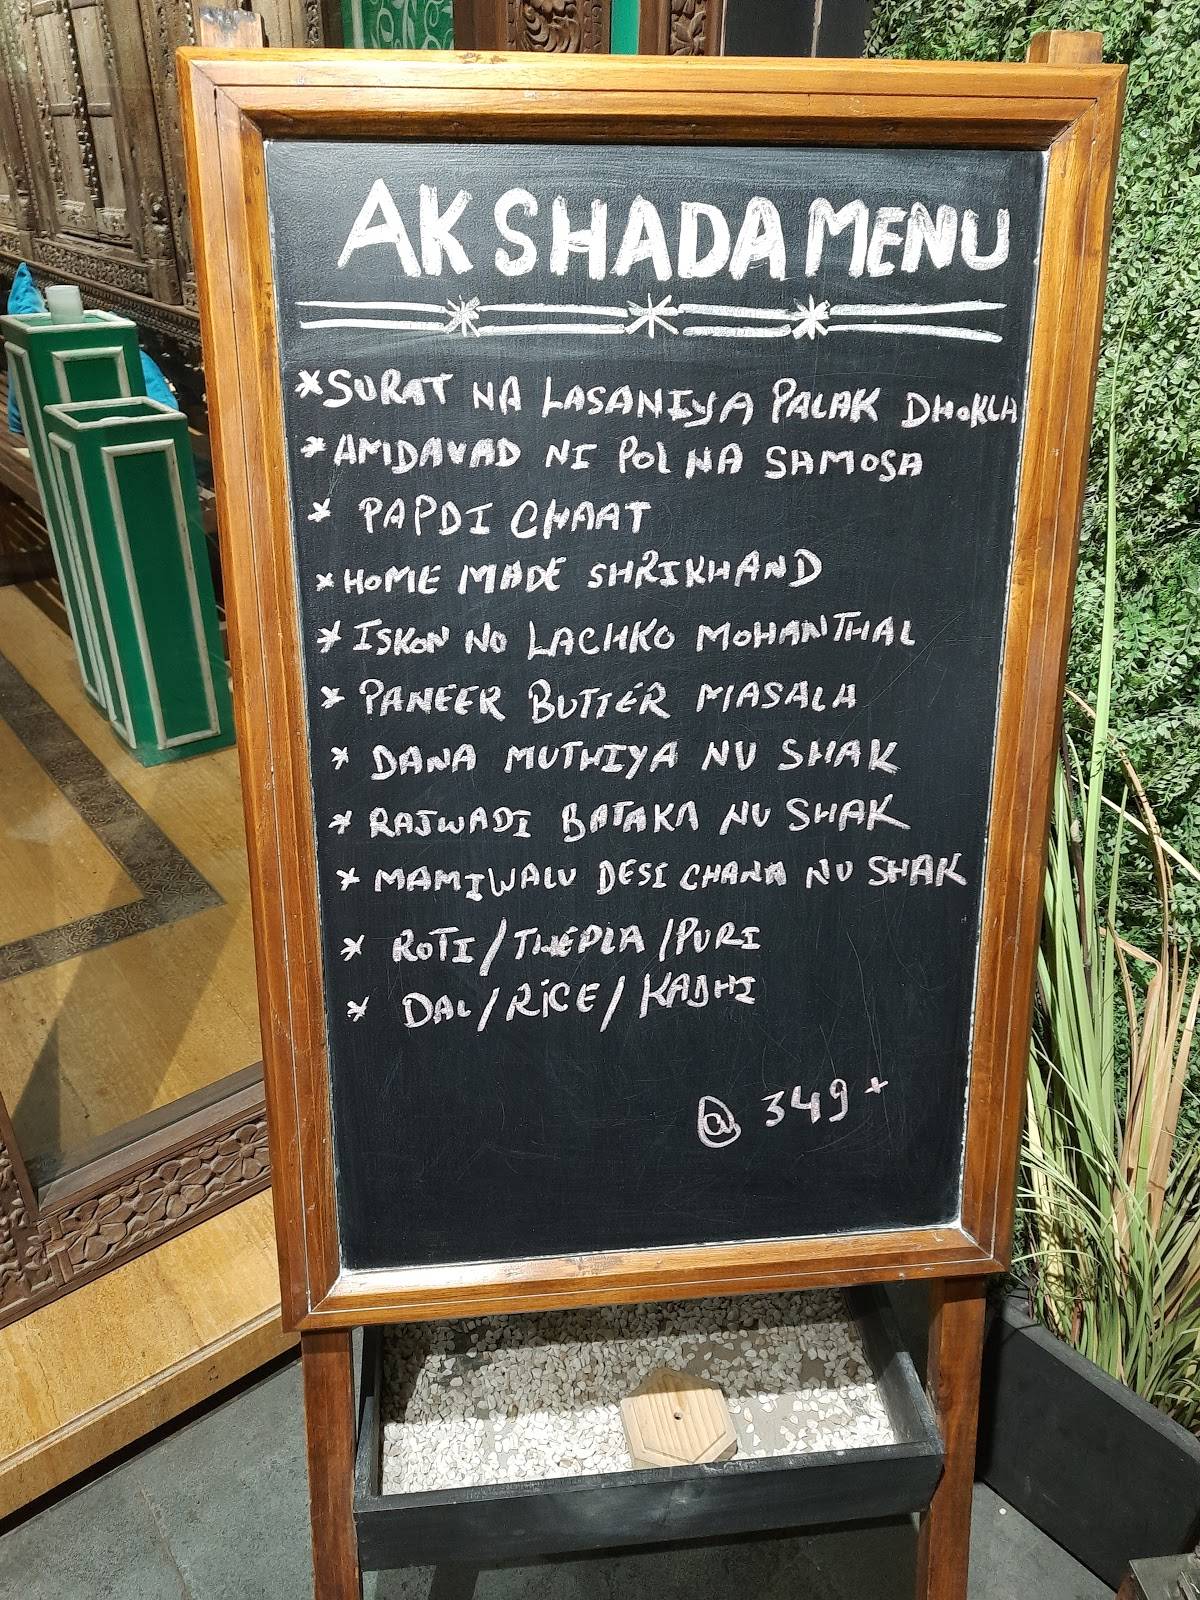 AKSHADA MENU
*SURAT NA LASANIYA PALAK DHOKLA
*AMDAVAD NI POL NA SAMOSA
* PAPDI CHAAT
*HOME MADE SHRIKHAND
*ISKON NO LACHKO MOHANTHAL
* PANEER BUTTER MASALA
* DANA MUTHIYA NU SHAK
* RAJWADI BATAKA NU SHAK
* MAMIWALU DESI CHANA NU SHAK
* ROTI/THEPLA/PURI
* DAL/RICE/KADHI
@ 349+